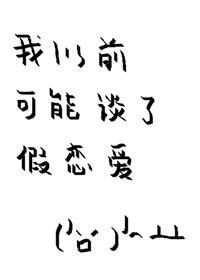 我以前
可能谈了
假恋爱